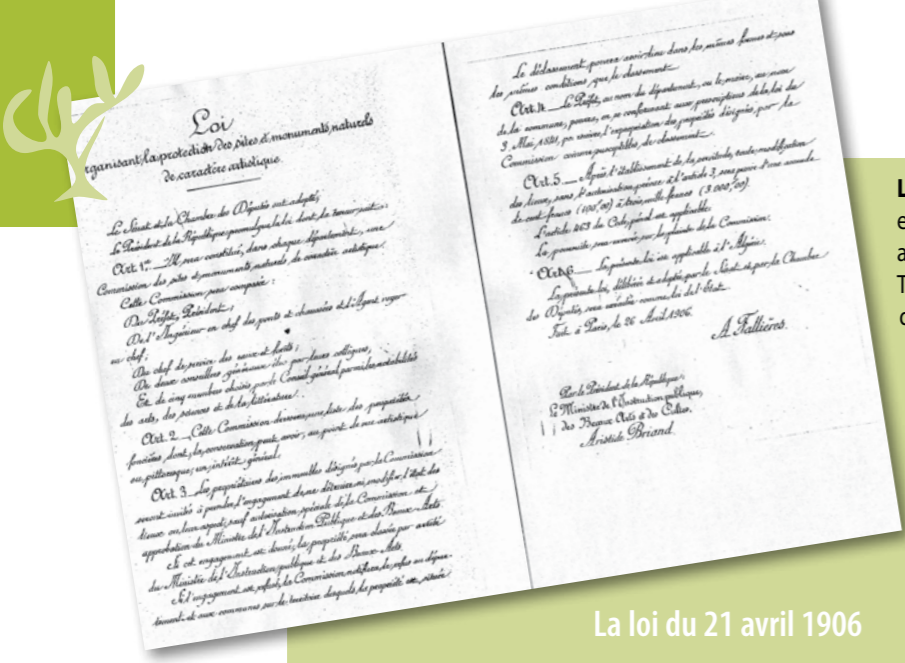 Loi
rganisant la protection des sites et monuments naturels
de caractère artistique.
Le Sénat et la Chambre des Députés ont adopté,
Le Président de la République promulgue la loi dont la teneur suit :
Art. 1er — Il sera constitué, dans chaque département, une
Commission des sites et monuments naturels de caractère artistique.
Cette Commission sera composée :
Du Préfet, Président ;
De l'Ingénieur en chef des ponts et chaussées et de l'Agent voyer
en chef ;
Du chef de service des eaux et forêts ;
De deux conseillers généraux élus par leurs collègues,
Et de cinq membres choisis par le Conseil général parmi les notabilités
des arts, des sciences et de la littérature.
Art. 2 — Cette Commission dressera une liste des propriétés
foncières dont la conservation peut avoir, au point de vue artistique
ou pittoresque, un intérêt général.
Art. 3 — Les propriétaires des immeubles désignés par la Commission
seront invités à prendre l'engagement de ne détruire ni modifier l'état des
lieux ou leur aspect, sauf autorisation spéciale de la Commission et
approbation du Ministre de l'Instruction Publique et des Beaux-Arts.
Si cet engagement est donné, la propriété sera classée par arrêté
du Ministre de l'Instruction publique et des Beaux-Arts.
Si l'engagement est refusé, la Commission notifiera le refus au dépar-
tement et aux communes sur le territoire desquels la propriété est située
Le déclassement pourra avoir lieu dans les mêmes formes et sous
les mêmes conditions que le classement.
Art. 4 — Le Préfet, au nom du département, ou le maire, au nom
de la commune, pourra, en se conformant aux prescriptions de la loi du
3 Mai 1841, poursuivre l'expropriation des propriétés désignées par la
Commission comme susceptibles de classement.
Art. 5 — Après l'établissement de la servitude, toute modification
des lieux, sans l'autorisation prévue à l'article 3, sera punie d'une amende
de cent francs (100,00) à trois mille francs (3.000,00).
L'article 463 du Code pénal est applicable.
La poursuite sera exercée sur la plainte de la Commission.
Art. 6 — La présente loi est applicable à l'Algérie.
La présente loi, délibérée et adoptée par le Sénat et par la Chambre
des Députés, sera exécutée comme loi de l'Etat.
Fait à Paris, le 26 Avril 1906.
A Fallières
Par le Président de la République :
Le Ministre de l'Instruction publique,
des Beaux Arts et des Cultes,
Aristide Briand
L
e
a
T
La loi du 21 avril 1906